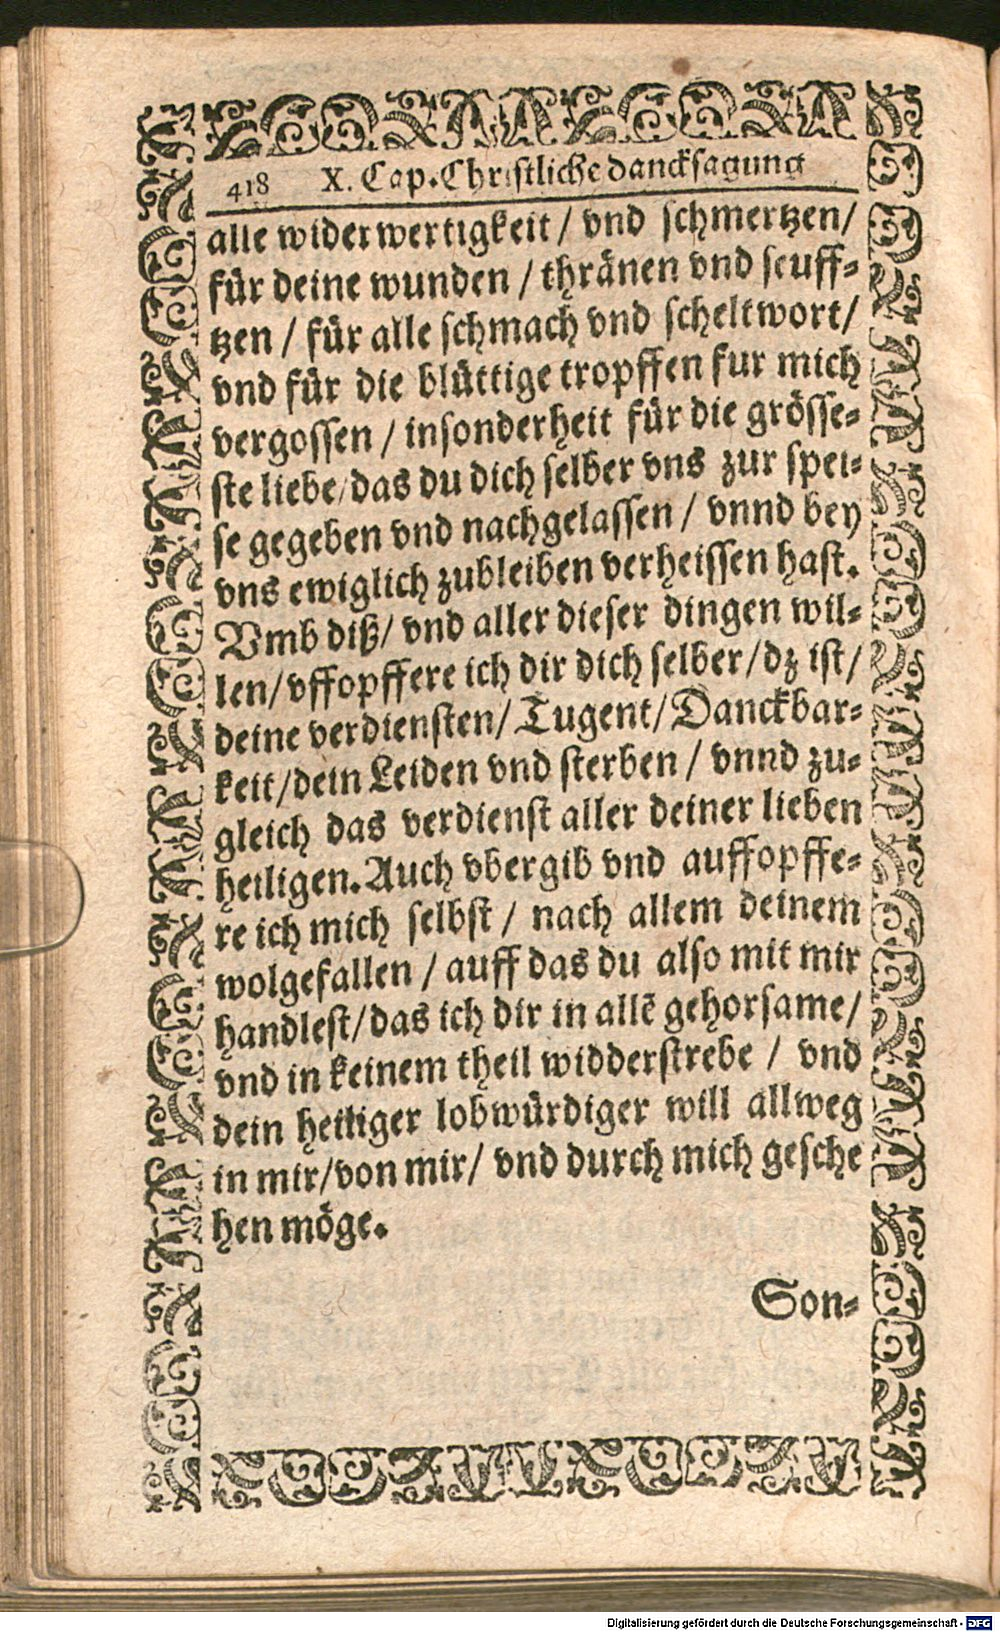 418 X. Cap. Christliche dancksagung
alle widerwertigkeit / vnd schmertzen/
für deine wunden / thränen vnd seuff-
tzen / für alle schmach vnd scheltwort/
vnd für die blüttige tropffen fur mich
vergossen / insonderheit für die grösse-
ste liebe/das du dich selber vns zur spei-
se gegeben vnd nachgelassen / vnnd bey
vns ewiglich zubleiben verheissen hast.
Vmb diß/ vnd aller dieser dingen wil-
len/vffopffere ich dir dich selber/dz ist/
deine verdiensten/Tugent/Danckbar-
keit/dein Leiden vnd sterben / vnnd zu-
gleich das verdienst aller deiner lieben
heiligen. Auch vbergib vnd auffopffe-
re ich mich selbst / nach allem deinem
wolgefallen / auff das du also mit mir
handlest/das ich dir in allē gehorsame/
vnd in keinem theil widderstrebe / vnd
dein heiliger lobwürdiger will allweg
in mir/von mir/ vnd durch mich gesche
hen möge.
Son-
Digitalisierung gefördert durch die Deutsche Forschungsgemeinschaft - DFG